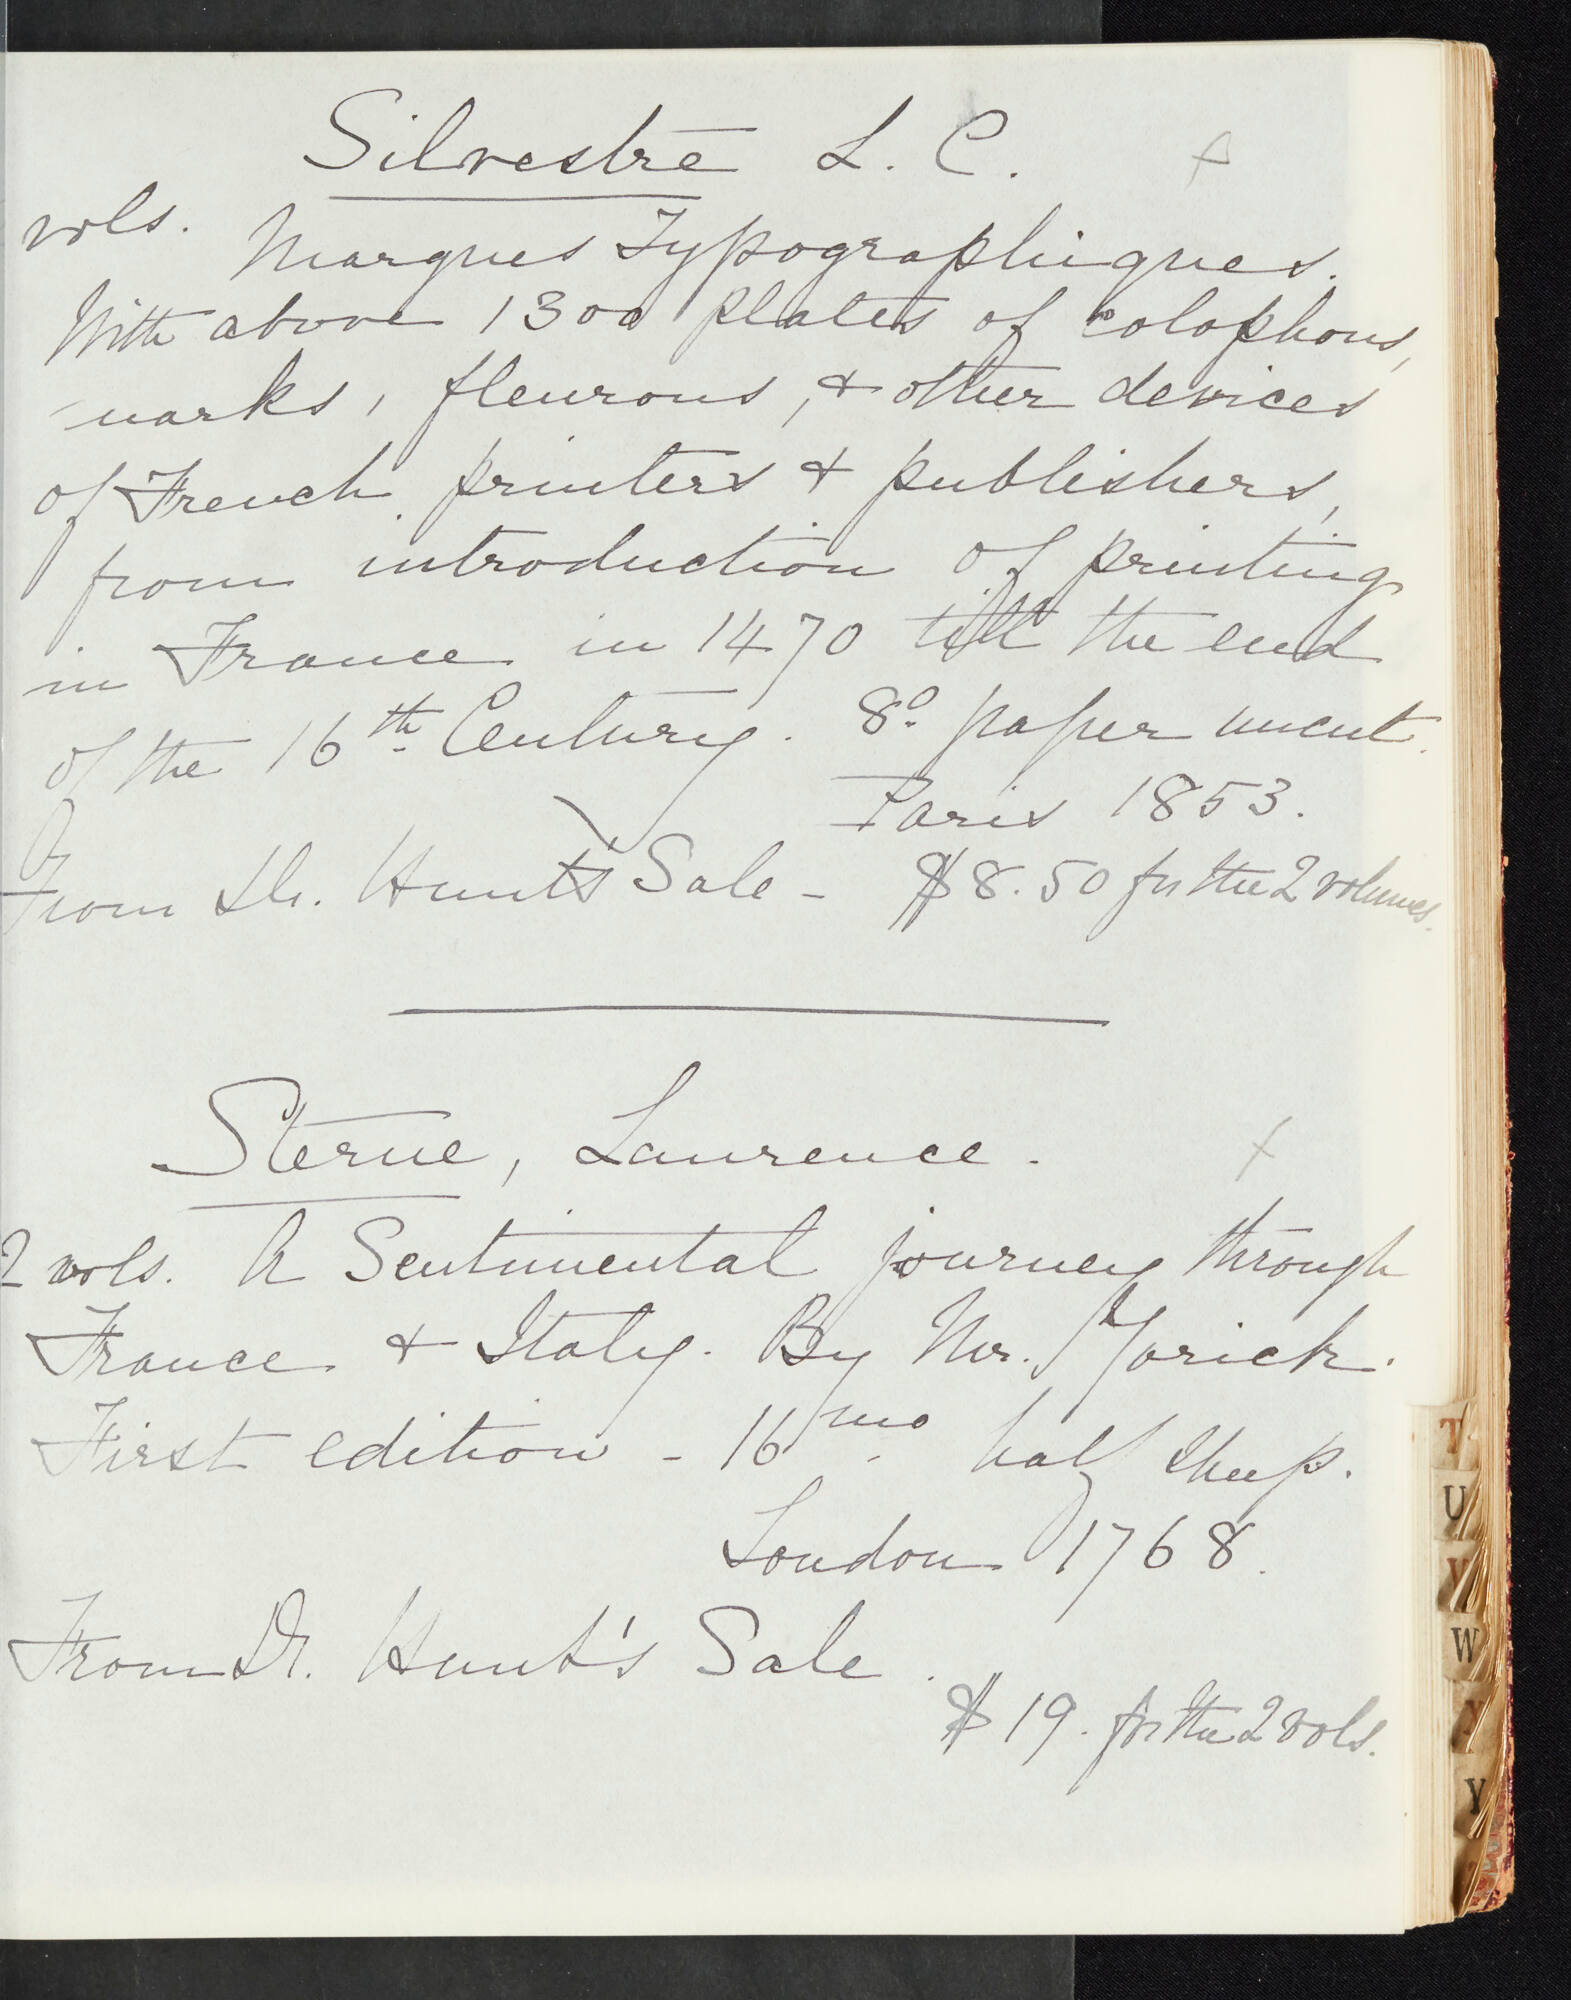 Silvestre L. C. x
vols. Marques Typographiques.
With above 1300 plates of colophons,
marks, fleurons, & other devices
of French printers & publishers,
from introduction of printing
in France in 1470 till the end
of the 16th Century. 8o. paper uncut.
Paris 1853.
From Dr. Hunt's Sale - $8.50 for the 2 volumes.
Sterne, Laurence. x
2 vols. A Sentimental journey through
France & Italy. By Mr. Yorick.
First edition - 16mo. half sheep.
London 1768.
From Dr. Hunt's Sale.
$19. for the 2 vols.
T
U
V
W
X
Y